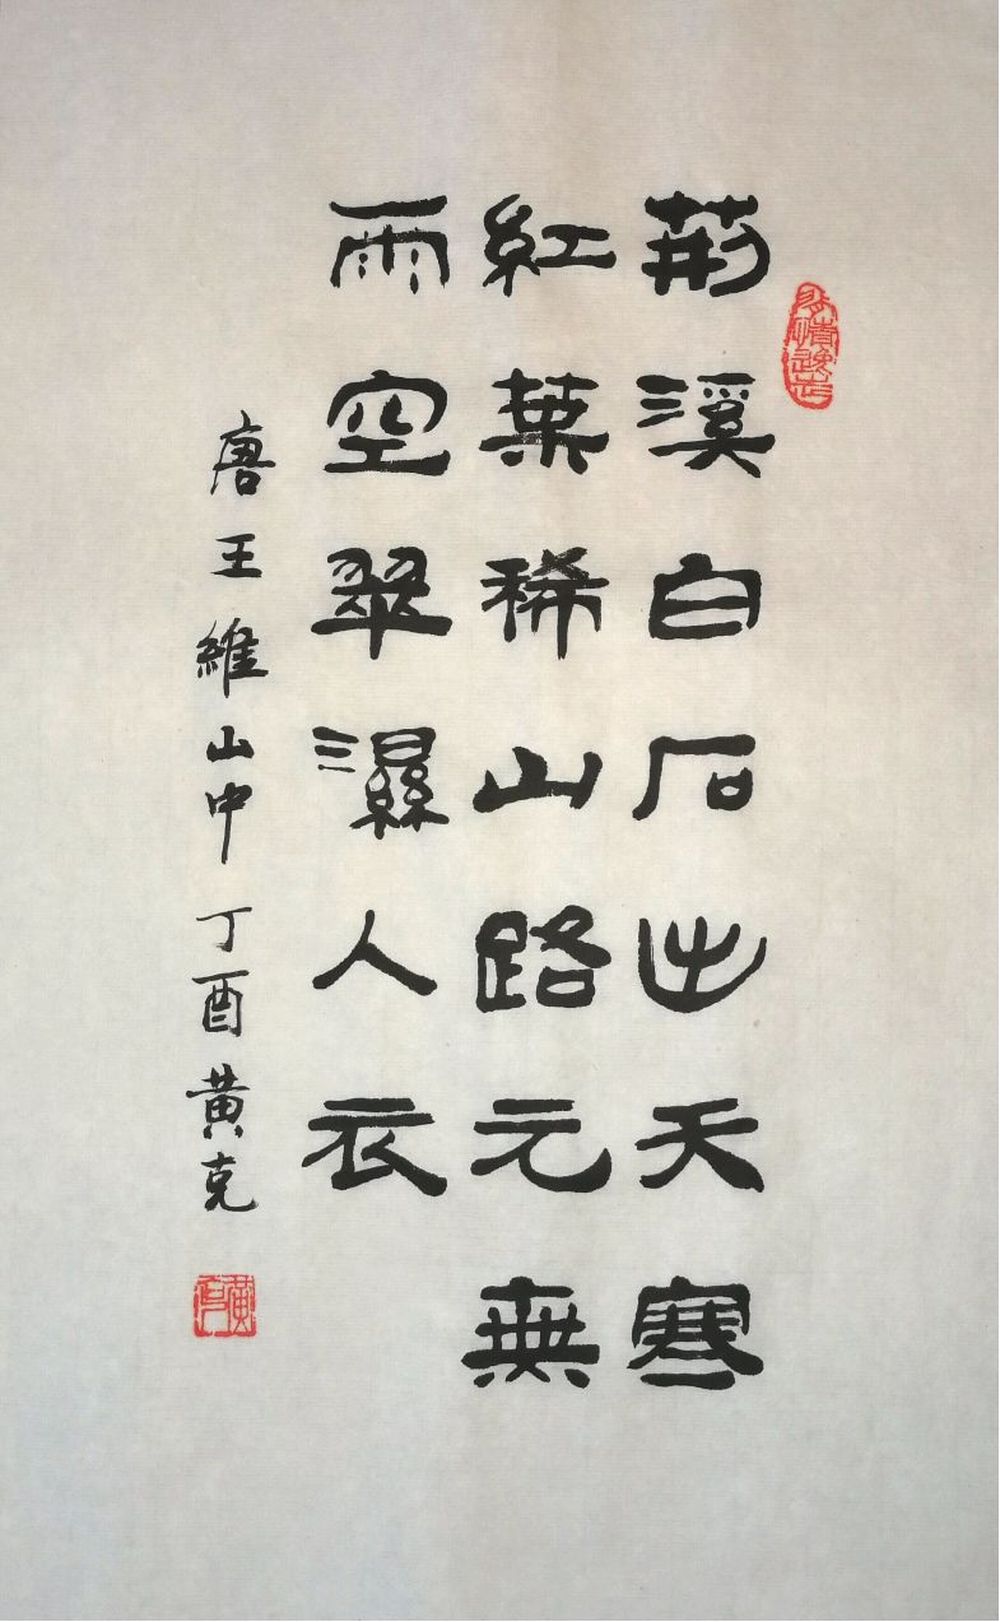 荊溪白石出天寒
紅葉稀山路元無
雨空翠濕人衣
唐王維山中 丁酉黄克